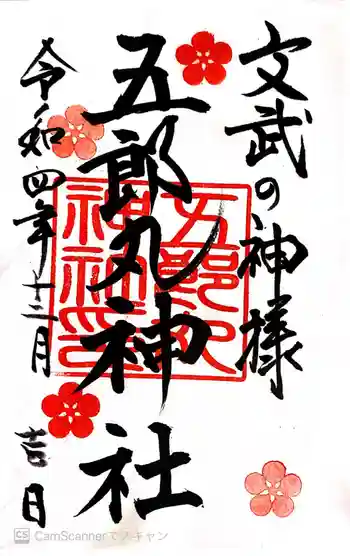 文武の神様
五郎丸神社
令和四年十二月
吉日
五郎丸
神社印
CS CamScannerでスキャン